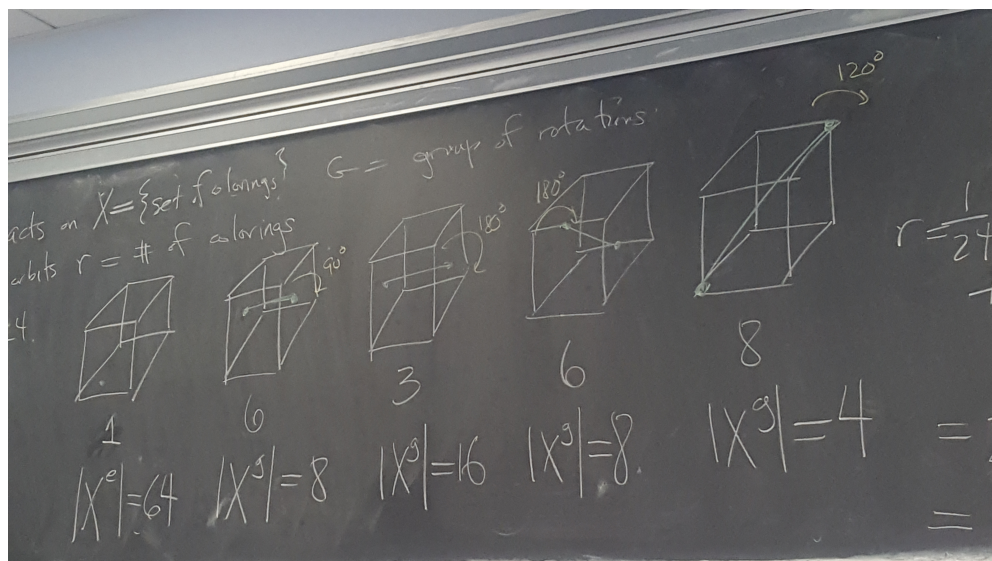 acts on X={set of colorings} G = group of rotations
orbits r = # of colorings
=4.
90°
180°
180°
120°
1 6 3 6 8
|X^e|=64 |X^g|=8 |X^g|=16 |X^g|=8 |X^g|=4
r=1/24
+
=
=